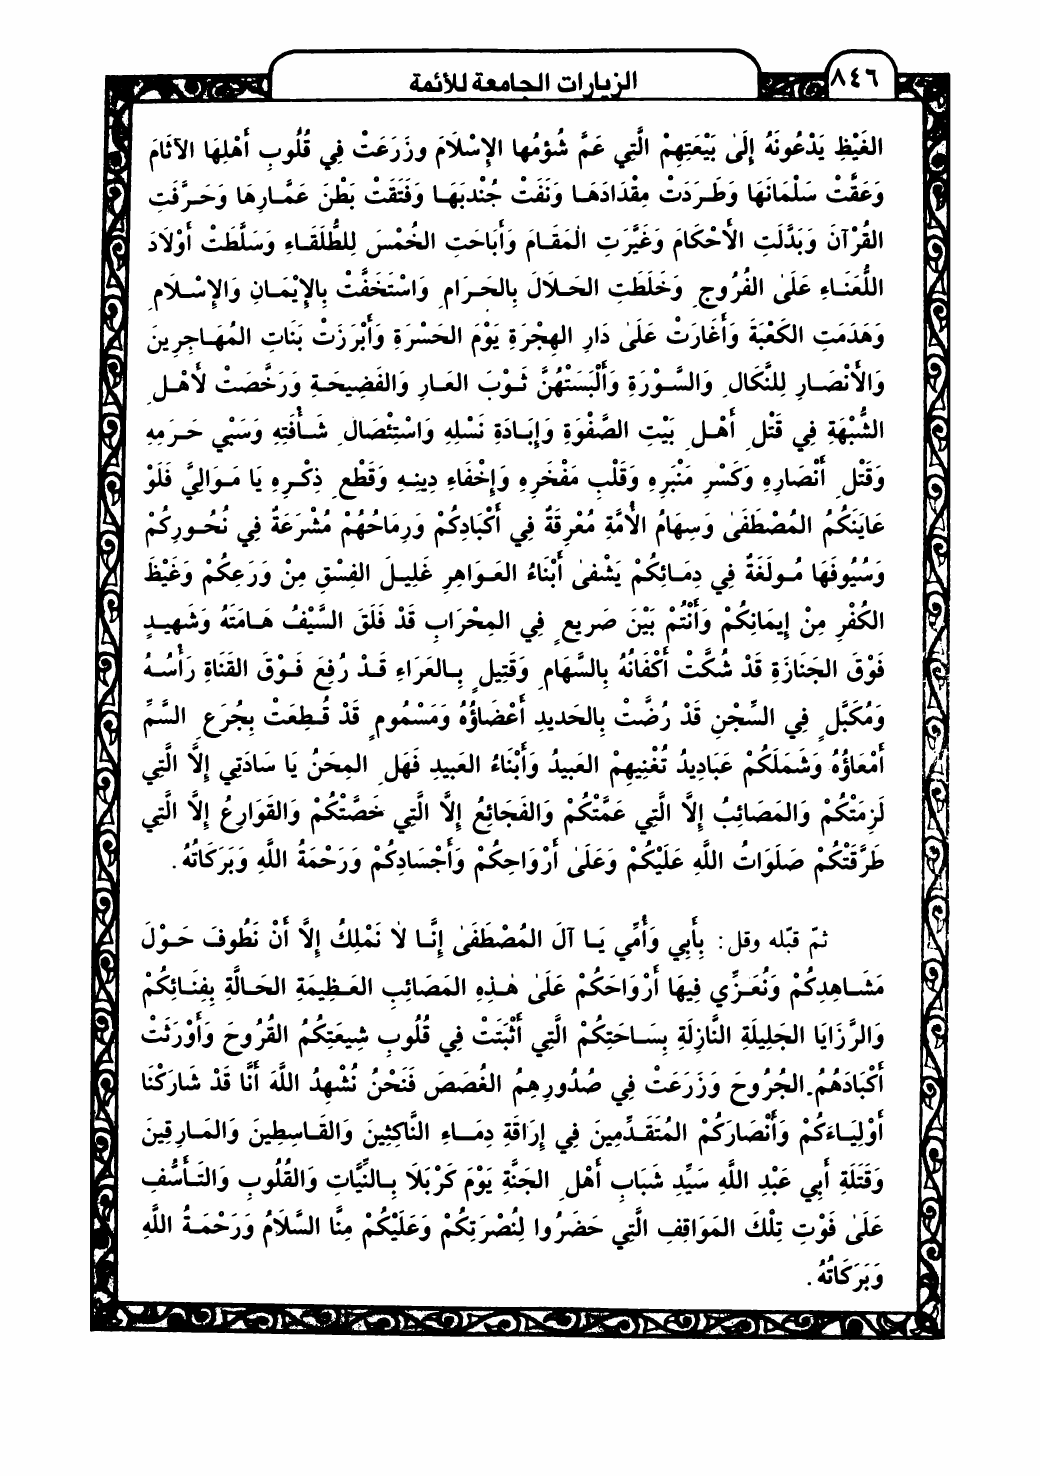 الزيارات الجامعة للأئمة
٨٤٦
الغَيْظِ يَدْعُونَهُ إِلَىٰ بَيْعَتِهِمْ الَّتِي عَمَّ شُؤمُها الإِسْلَامَ وزَرَعَتْ فِي قُلُوبِ أَهْلِهَا الآثَامَ
وَعَقَّتْ سَلْمَانَهَا وَطَرَدَتْ مِقْدَادَهَا وَنَفَتْ جُنْدبَهَا وَفَتَقَتْ بَطْنَ عَمَّارِهَا وَحَرَّفَتِ
القُرْآنَ وَبَدَّلَتِ الأَحْكَامَ وَغَيَّرَتِ المَقَامَ وَأَبَاحَتِ الخُمْسَ لِلطُّلَقَاءِ وَسَلَّطَتْ أَوْلَادَ
اللُّعَنَاءِ عَلَىٰ الفُرُوجِ وَخَلَطَتِ الحَلَالَ بِالحَرَامِ وَاسْتَخَفَّتْ بِالإِيْمَانِ وَالإِسْلَامِ
وَهَدَمَتِ الكَعْبَةَ وَأَغَارَتْ عَلَىٰ دَارِ الهِجْرَةِ يَوْمَ الحَسْرَةِ وَأَبْرَزَتْ بَنَاتِ المُهَاجِرِينَ
وَالأَنْصَارِ لِلنَّكَالِ وَالسَّوْرَةِ وَأَلْبَسَتْهُنَّ ثَوْبَ العَارِ وَالفَضِيحَةِ وَرَخَّصَتْ لأَهْلِ
الشُّبْهَةِ فِي قَتْلِ أَهْلِ بَيْتِ الصَّفْوَةِ وَإِبَادَةِ نَسْلِهِ وَاسْتِئْصَالِ شَأْفَتِهِ وَسَبْي حَرَمِهِ
وَقَتْلِ أَنْصَارِهِ وَكَسْرِ مَنْبَرِهِ وَقَلْبِ مَفْخَرِهِ وَإِخْفَاءِ دِينِهِ وَقَطْعِ ذِكْرِهِ يَا مَوَالِيَّ فَلَوْ
عَايَنَكُمُ المُصْطَفَىٰ وَسِهَامُ الأُمَّةِ مُعْرِقَةٌ فِي أَكْبَادِكُمْ وَرِمَاحُهُمْ مُشْرَعَةٌ فِي نُحُورِكُمْ
وَسُيُوفُهَا مُولَغَةٌ فِي دِمَائِكُمْ يَشْفىٰ أَبْنَاءُ العَوَاهِرِ غَلِيلَ الفِسْقِ مِنْ وَرَعِكُمْ وَغَيْظَ
الكُفْرِ مِنْ إِيمَانِكُمْ وَأَنْتُمْ بَيْنَ صَرِيعٍ فِي المِحْرَابِ قَدْ فَلَقَ السَّيْفُ هَامَتَهُ وَشَهِيدٍ
فَوْقَ الجَنَازَةِ قَدْ شُكَّتْ أَكْفَانُهُ بِالسَّهَامِ وَقَتِيلٍ بِالعَرَاءِ قَدْ رُفِعَ فَوْقَ القَنَاةِ رَأْسُهُ
وَمُكَبَّلٍ فِي السِّجْنِ قَدْ رُضَّتْ بِالحَدِيدِ أَعْضَاؤُهُ وَمَسْمُومٍ قَدْ قُطِعَتْ بِجُرَعِ السَّمِّ
أَمْعَاؤُهُ وَشَمَلَكُمْ عَبَادِيدُ تُغْنِيهِمْ العَبِيدُ وَأَبْنَاءُ العَبِيدِ فَهَلِ المِحَنُ يَا سَادَتِي إِلَّا الَّتِي
لَزِمَتْكُمْ وَالمَصَائِبُ إِلَّا الَّتِي عَمَّتْكُمْ وَالفَجَائِعُ إِلَّا الَّتِي خَصَّتْكُمْ وَالقَوَارِعُ إِلَّا الَّتِي
طَرَّقَتْكُمْ صَلَوَاتُ اللَّهِ عَلَيْكُمْ وَعَلَىٰ أَرْوَاحِكُمْ وَأَجْسَادِكُمْ وَرَحْمَةُ اللَّهِ وَبَرَكَاتُهُ .
ثمّ قبّله وقل: بِأَبِي وَأُمِّي يَا آلَ المُصْطَفَىٰ إِنَّا لَا نَمْلِكُ إِلَّا أَنْ نَطُوفَ حَوْلَ
مَشَاهِدِكُمْ وَنُعَزِّي فِيهَا أَرْوَاحَكُمْ عَلَىٰ هٰذِهِ المَصَائِبِ العَظِيمَةِ الحَالَّةِ بِفِنَائِكُمْ
وَالرَّزَايَا الجَلِيلَةِ النَّازِلَةِ بِسَاحَتِكُمْ الَّتِي أَثْبَتَتْ فِي قُلُوبِ شِيعَتِكُمُ القُرُوحَ وَأَوْرَثَتْ
أَكْبَادَهُمُ.الجُرُوحَ وَزَرَعَتْ فِي صُدُورِهِمُ الغُصَصَ فَنَحْنُ نُشْهِدُ اللَّهَ أَنَّا قَدْ شَارَكْنَا
أَوْلِيَاءَكُمْ وَأَنْصَارَكُمْ المُتَقَدِّمِينَ فِي إِرَاقَةِ دِمَاءِ النَّاكِثِينَ وَالقَاسِطِينَ وَالمَارِقِينَ
وَقَتَلَةِ أَبِي عَبْدِ اللَّهِ سَيِّدِ شَبَابِ أَهْلِ الجَنَّةِ يَوْمَ كَرْبَلَا بِالنِّيَّاتِ وَالقُلُوبِ وَالتَأَسُّفِ
عَلَىٰ فَوْتِ تِلْكَ المَوَاقِفِ الَّتِي حَضَرُوا لِنُصْرَتِكُمْ وَعَلَيْكُمْ مِنَّا السَّلَامُ وَرَحْمَةُ اللَّهِ
وَبَرَكَاتُهُ .